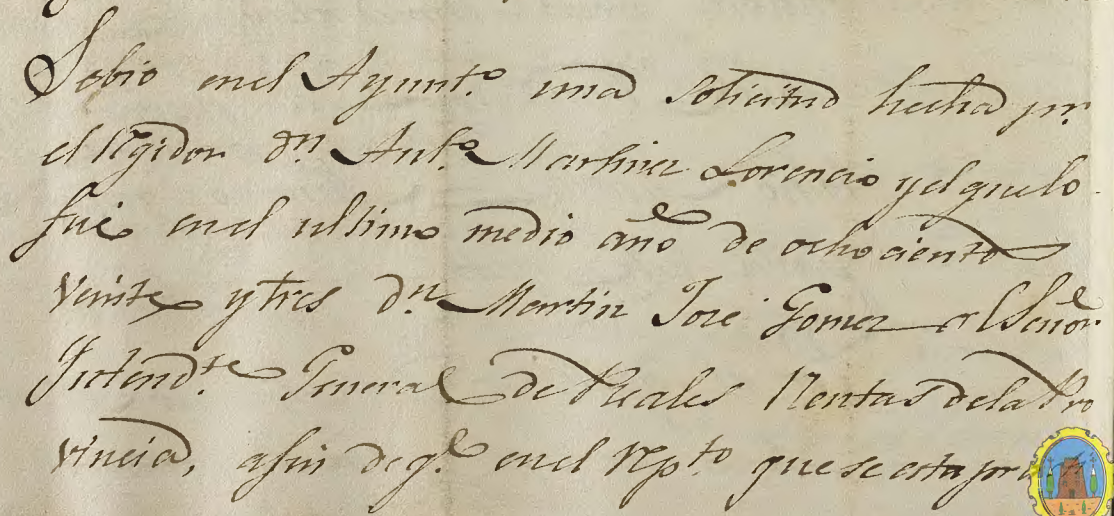 Se bio en el Ayunt.º una solicitud hecha pr.
el regidor Dn. Ant.º Martinez Lorencio y el que lo
fué en el ultimo medio año de ochociento
veinte y tres Dn. Martin José Gomez al Señor
Intend.te General de Reales Rentas de la Pro
vincia, afin de q.e en el rep.to que se esta